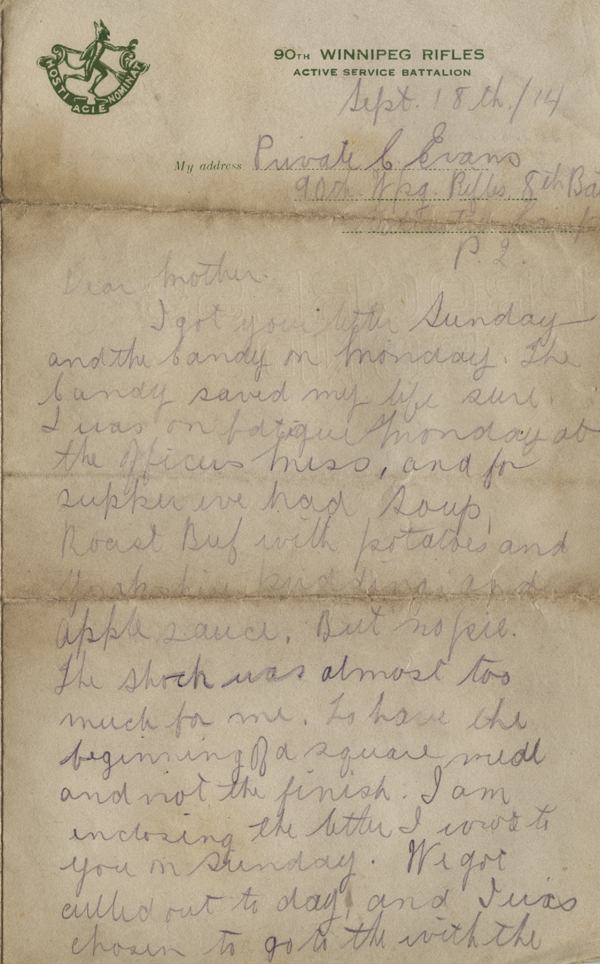 HOSTI ACIE NOMINATI
90TH WINNIPEG RIFLES
ACTIVE SERVICE BATTALION
Sept. 18th./14
My address Private C. Evans
90th. Wpg. Rifles, 8th Ba
P. Q.
Dear Mother.
I got your letter Sunday
and the Candy on Monday. The
Candy saved my life sure.
I was on fatigue Monday at
the Officers Mess, and for
supper we had Soup,
Roast Beef with potatoes and
Yorkshire pudding, and
Apple sauce. But no pie.
The shock was almost too
much for me. To have the
beginning of a square meal
and not the finish. I am
enclosing the letter I wrote to
you on Sunday. We got
culled out to day, and I was
chosen to go to the with the